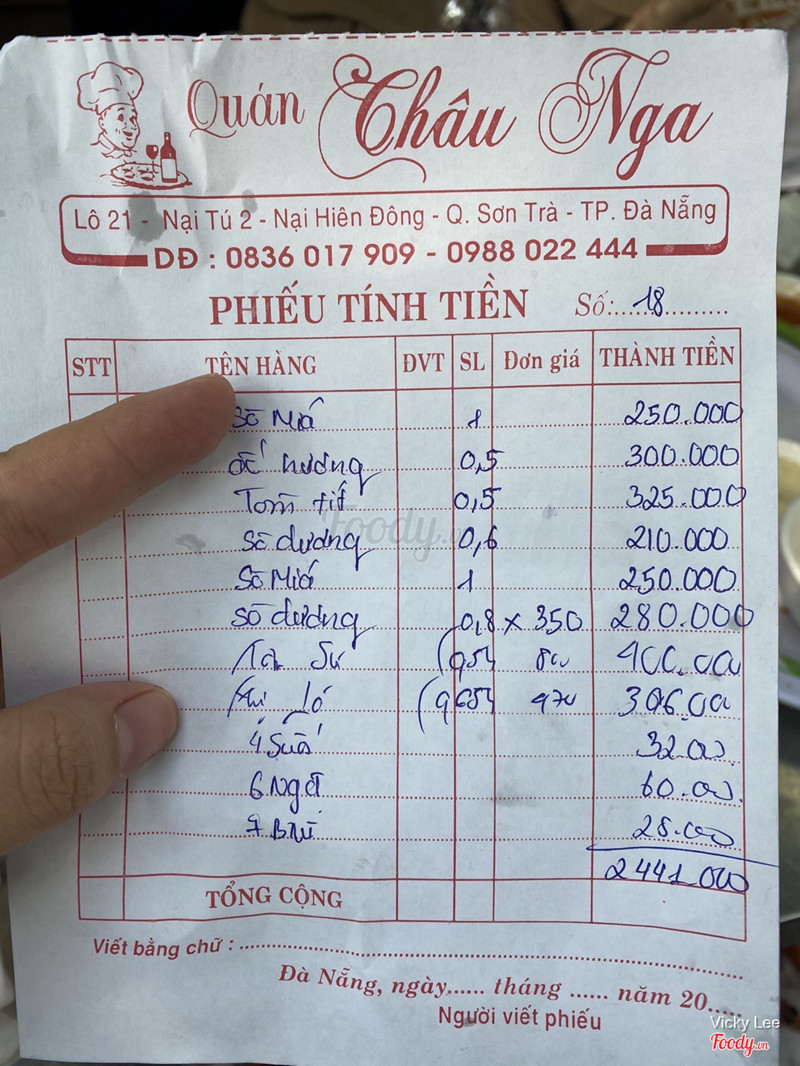 Quán Châu Nga
Lô 21 - Nại Tú 2 - Nại Hiên Đông - Q. Sơn Trà - TP. Đà Nẵng
DĐ : 0836 017 909 - 0988 022 444
PHIẾU TÍNH TIỀN Số:.....18..........
STT TÊN HÀNG ĐVT SL Đơn giá THÀNH TIỀN
Sò Miá 1 250.000
ốc hương 0,5 300.000
Tôm tít 0,5 325.000
Sò dương 0,6 210.000
Sò Miá 1 250.000
Sò dương 0,8 x 350 280.000
Sú 400.000
32.000
6 Ngọt 60.000
7 28.000
2441.000
TỔNG CỘNG
Viết bằng chữ :
Đà Nẵng, ngày...... tháng ...... năm 20.....
Người viết phiếu
Foody.vn
Vicky Lee
Foody.vn